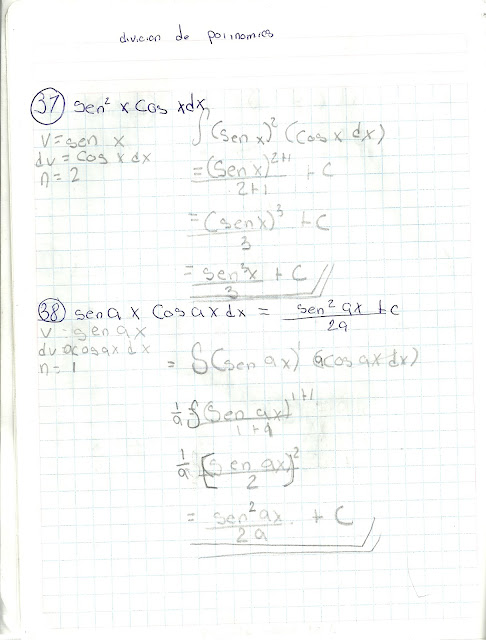 divicion de polinomios
37) sen² x cos xdx
v = sen x
dv = cos x dx
n = 2
∫(sen x)² (cos x dx)
= (sen x)²⁺¹ / 2+1 + C
= (sen x)³ / 3 + C
= sen³x / 3 + C
38) sen a x cos ax dx = sen² ax / 2a + c
v = sen ax
dv = a cos ax dx
n = 1
= ∫(sen ax)¹ (a cos ax dx)
1/a ∫(sen ax)¹⁺¹ / 1+1
1/a [sen ax / 2]²
= sen² ax / 2a + C